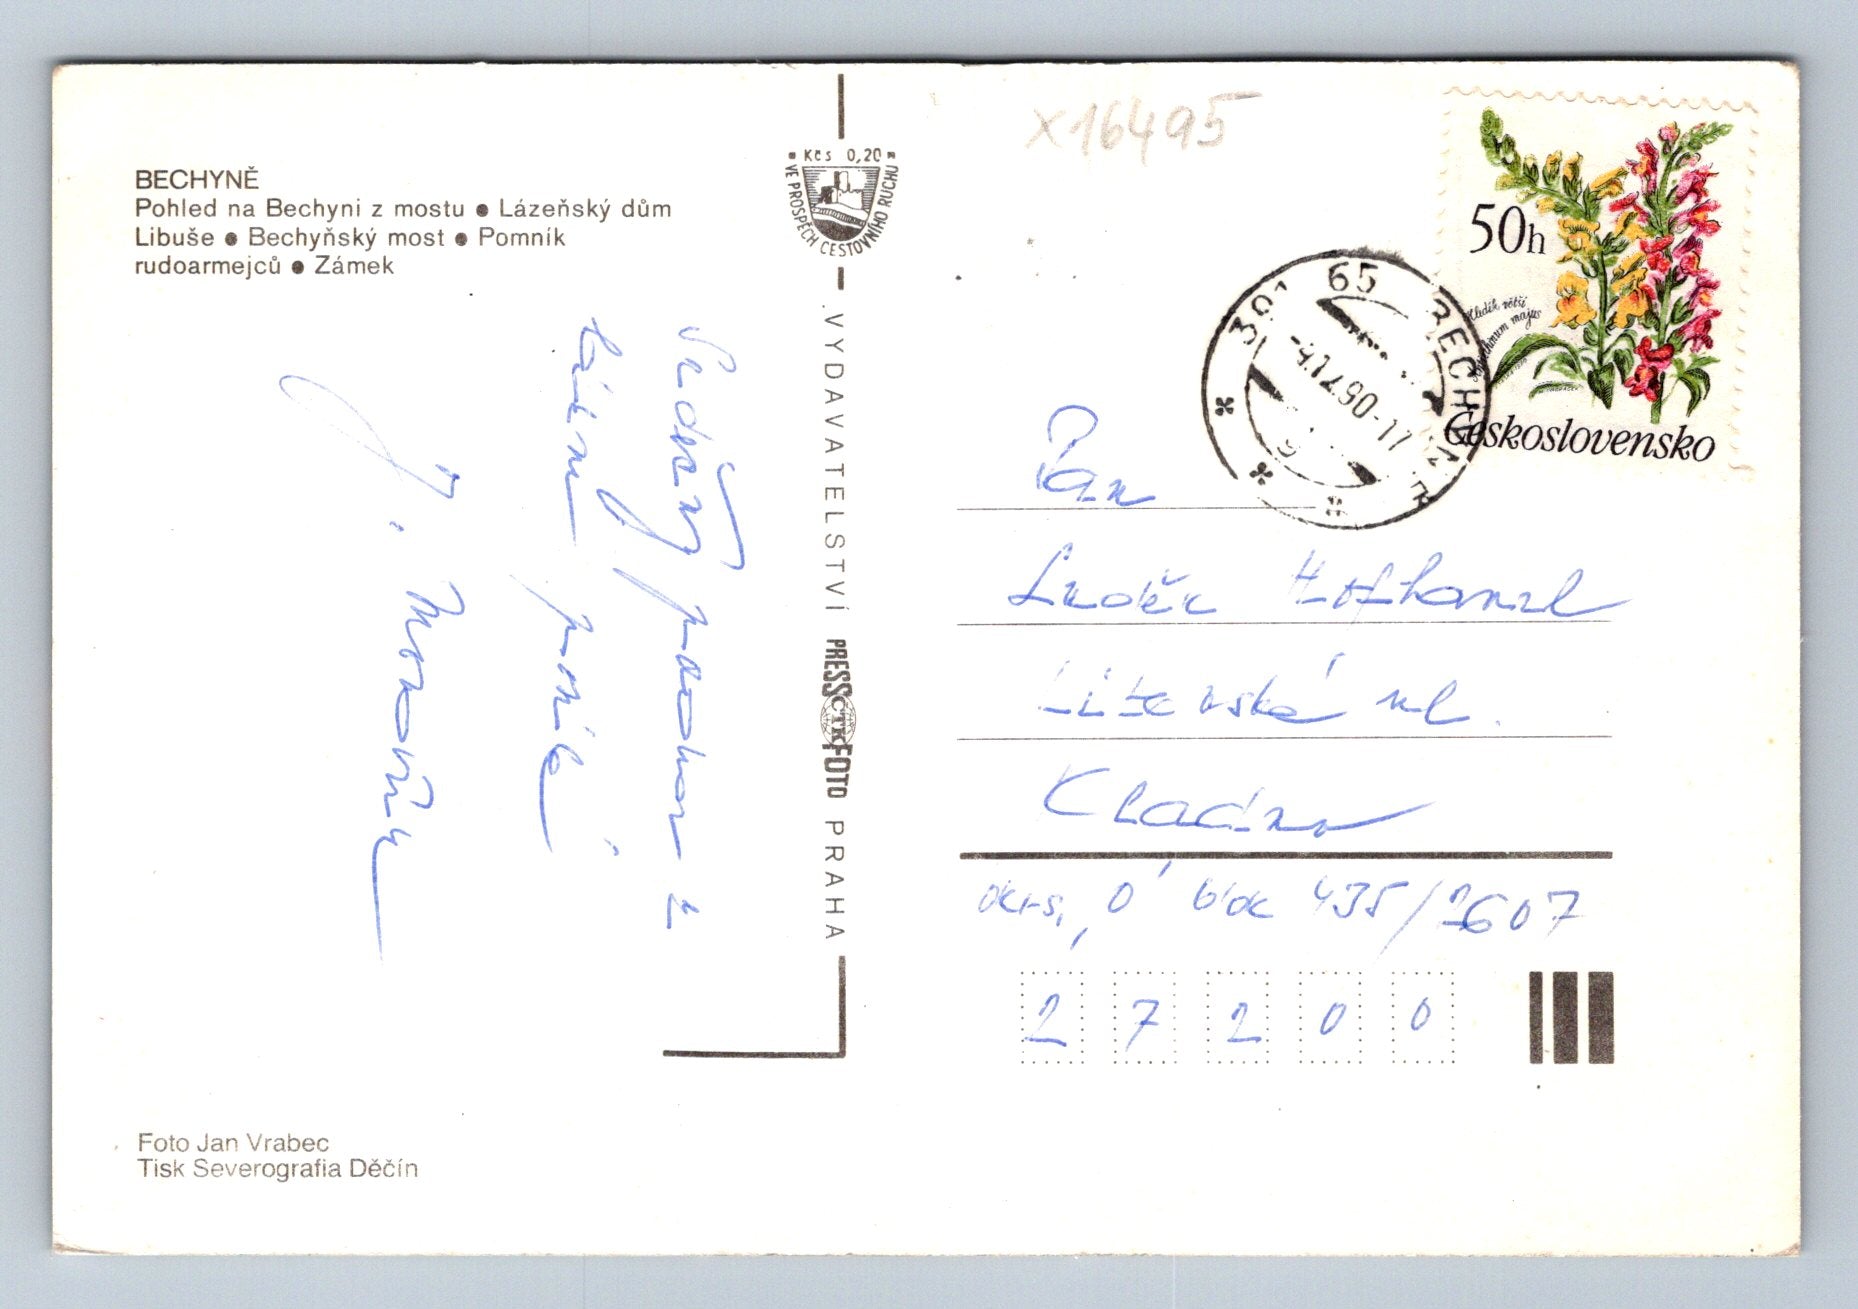 BECHYNĚ
Pohled na Bechyni z mostu ● Lázeňský dům
Libuše ● Bechyňský most ● Pomník
rudoarmejců ● Zámek
Kčs 0,20
VE PROSPĚCH CESTOVNÍHO RUCHU
VYDAVATELSTVÍ PRESSFOTO PRAHA
ČTK
Srdečný pozdrav z
lázní posílá
J.
x16495
50h
Hledík větší
Antirrhinum majus
Československo
391 65 BECHYNĚ
-4.12.90-17
Pan
Luděk
ul.
Kladno
blok 435/1607
27200
Foto Jan Vrabec
Tisk Severografia Děčín